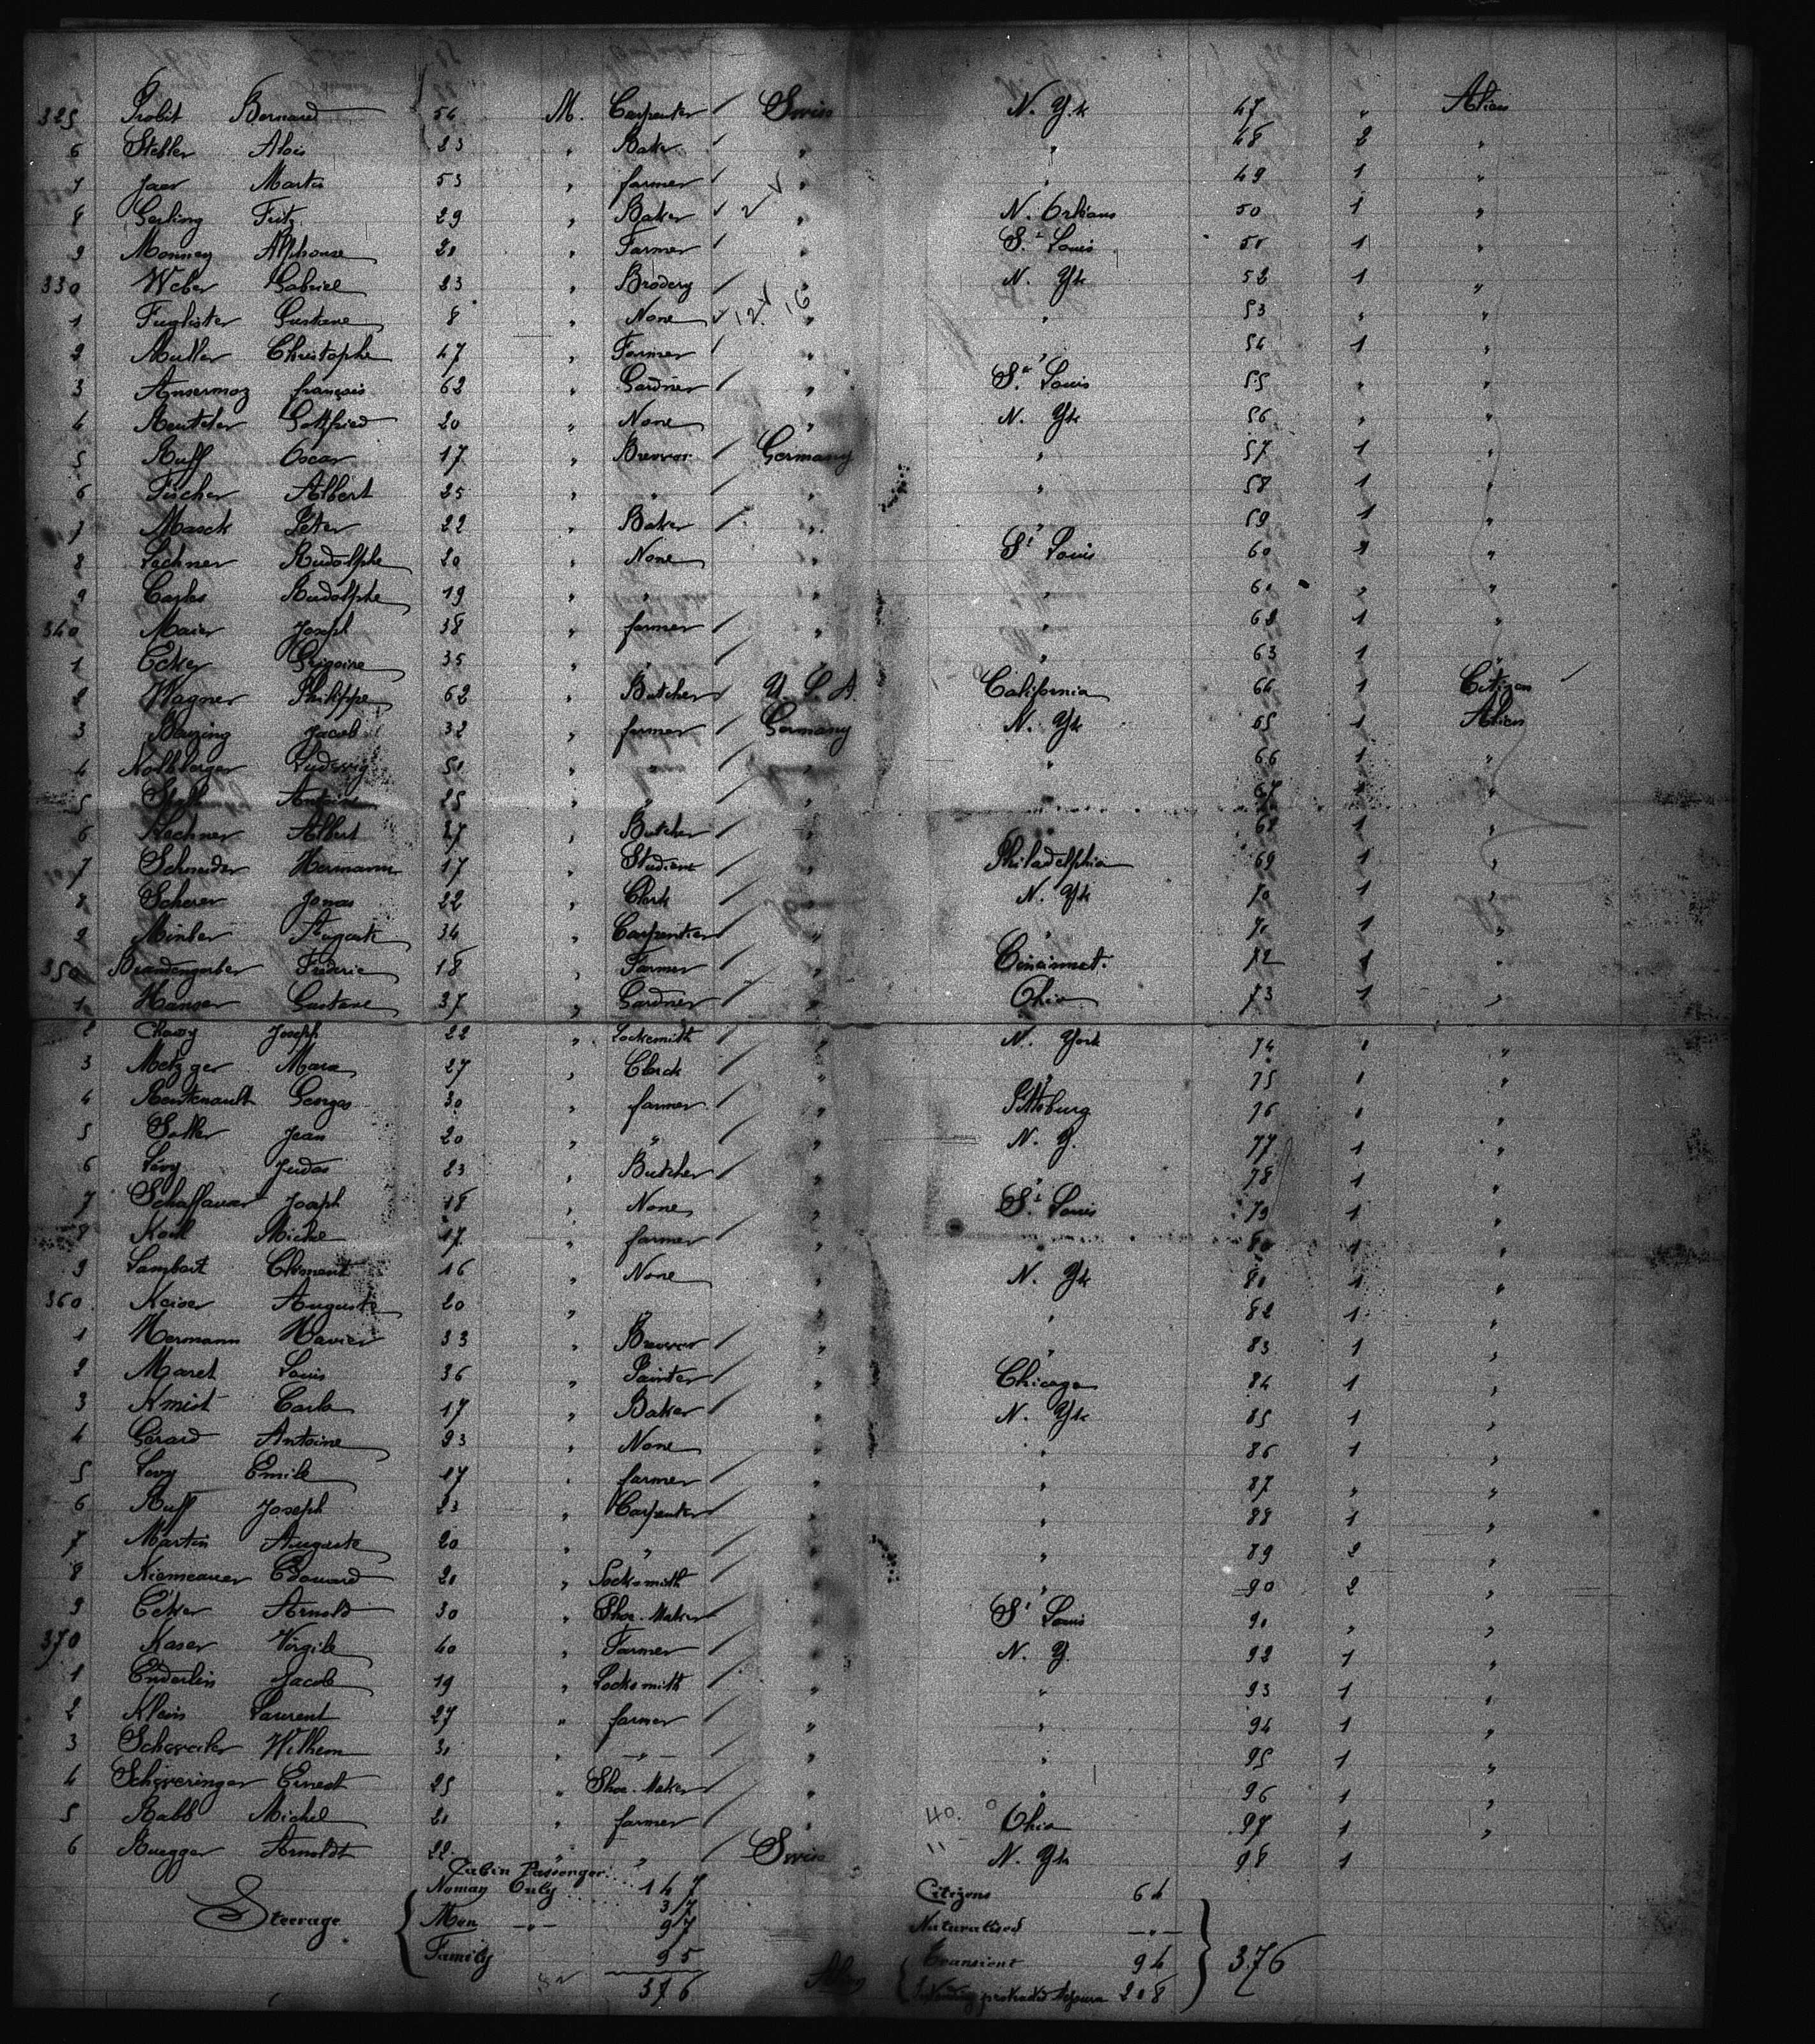 325 Probit Bernard 54 M. Carpenter Swiss N. Y.k 47 " Alien
6 Stebler Alois 23 " Baker " " 48 2 "
7 Jaer Martin 53 " farmer " " 49 1 "
8 Gerling Fritz 29 " Baker " N. Orléans 50 1 "
9 Monney Alphonse 21 " Farmer " St Louis 51 1 "
330 Weber Gabriel 23 " Brodery " N. Yk 52 1 "
1 Fuglister Gustave 8 " None " " 53 " "
2 Muller Christophe 47 " Farmer " " 54 1 "
3 Ansermoz françois 62 " Gardner " St Louis 55 " "
4 Gottfried 20 " None " N. Yk 56 " "
5 Ruff Oscar 17 " Brewer Germany " 57 1 "
6 Fischer Albert 25 " " " " 58 1 "
7 Masck Peter 22 " Baker " " 59 1 "
8 Lechner Rudolphe 20 " None " St Louis 60 1 "
9 Carles Rudolphe 19 " " " " 61 " "
340 Maier Joseph 38 " farmer " " 62 1 "
1 Ecker Grégoire 35 " " " " 63 1 "
2 Wagner Philippe 62 " Butcher U. S. A. California 64 1 Citizen
3 Jacob 32 " farmer Germany N. Yk 65 1 Alien
4 Ludewig 51 " " " " 66 1 "
5 Antoine 25 " " " " 67 1 "
6 Lechner Albert 27 " Butcher " " 68 1 "
7 Schneider Hermann 17 " Student " Philadelphia 69 1 "
8 Scherer Jonas 22 " Clerk " N. Yk 70 1 "
9 Auguste 34 " Carpentier " " 71 1 "
350 Brandengerber Frédéric 18 " Farmer " Cincinnat. 72 1 "
1 Hanser Gustave 37 " Gardner " Ohio 73 1 "
2 Joseph 22 " Locksmith " N. York 74 1 "
3 Metzger Marx 27 " Clerck " " 75 1 "
4 Georges 30 " farmer " Pittsburg 76 1 "
5 Sutter Jean 20 " " " N. Y. 77 1 "
6 Lévy Judas 23 " Butcher " " 78 1 "
7 Schaffauser Joseph 18 " None " St Louis 79 1 "
8 Koch Michel 17 " farmer " " 80 1 "
9 Lambert Clément 16 " None " N. Yk 81 1 "
360 Keiser Auguste 20 " " " " 82 1 "
1 Hermann Xavier 33 " Brewer " " 83 1 "
2 Maret Louis 36 " Painter " Chicago 84 1 "
3 Kmist Carle 17 " Baker " N. Yk 85 1 "
4 Gérard Antoine 23 " None " " 86 1 "
5 Levy Emile 17 " farmer " " 87 " "
6 Ruff Joseph 23 " Carpenter " " 88 1 "
7 Martin Auguste 20 " " " " 89 2 "
8 Edouard 21 " Locksmith " " 90 2 "
9 Ecker Arnold 30 " Shoe-Maker " St Louis 91 " "
370 Kaser Virgile 40 " Farmer " N. Y. 92 1 "
1 Enderlin Jacob 19 " Locksmith " " 93 1 "
2 Klein Laurent 27 " farmer " " 94 1 "
3 Wilhem 31 " " " " 95 1 "
4 Schweringer Ernest 25 " Shoe-Maker " " 96 1 "
5 Rabb Michel 21 " farmer " Ohio 97 1 "
6 Ruegger Arnoldt 22 " " Swiss N. Yk 98 1
Cabin Passenger 147
Steerage Woman Only 37 Citizens 64
Men 97 Naturalised
Family 95 Transient 94
376 Alien Intending protracted Sejours 208
376